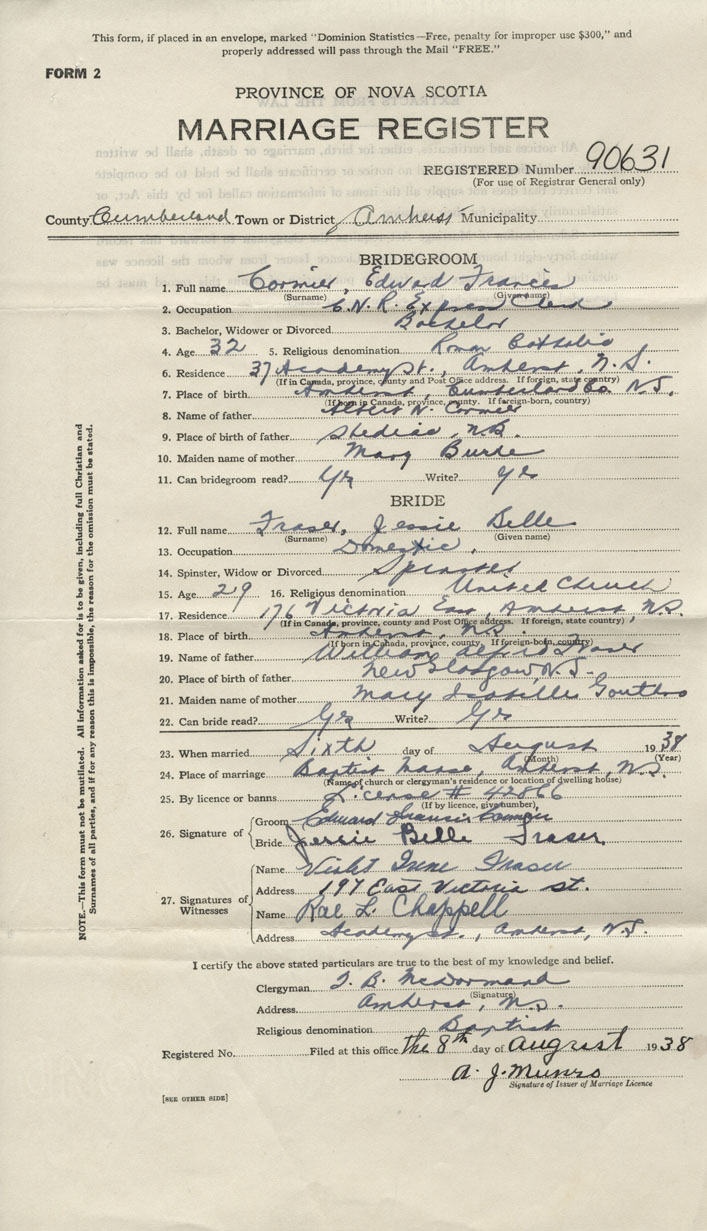 This form, if placed in an envelope, marked "Dominion Statistics—Free, penalty for improper use $300," and
properly addressed will pass through the Mail "FREE."
FORM 2
PROVINCE OF NOVA SCOTIA
MARRIAGE REGISTER
REGISTERED Number 90631
(For use of Registrar General only)
County Cumberland Town or District Amherst Municipality
BRIDEGROOM
1. Full name Cormier, Edward Francis
(Surname) (Given name)
2. Occupation C.N.R. Express Clerk
3. Bachelor, Widower or Divorced Bachelor
4. Age 32 5. Religious denomination Roman Catholic
6. Residence 37 Academy St., Amherst, N.S.
(If in Canada, province, county and Post Office address. If foreign, state country)
7. Place of birth Amherst, Cumberland Co. N.S.
(If born in Canada, province, county. If foreign-born, country)
8. Name of father Albert W. Cormier
9. Place of birth of father Shediac, N.B.
10. Maiden name of mother Mary Burke
11. Can bridegroom read? Yes Write? Yes
BRIDE
12. Full name Fraser, Jessie Belle
(Surname) (Given name)
13. Occupation Domestic,
14. Spinster, Widow or Divorced Spinster
15. Age 29 16. Religious denomination United Church
17. Residence 176 Victoria East, Amherst, N.S.
(If in Canada, province, county and Post Office address. If foreign, state country)
18. Place of birth Amherst, N.S.
(If born in Canada, province, county. If foreign-born, country)
19. Name of father William Alfred Fraser
20. Place of birth of father New Glasgow, N.S.
21. Maiden name of mother Mary Isabelle Gouthro
22. Can bride read? Yes Write? Yes
23. When married Sixth day of August 1938
(Month) (Year)
24. Place of marriage Baptist Manse, Amherst, N.S.
(Name of church or clergyman's residence or location of dwelling house)
25. By licence or banns License # 42866
(If by licence, give number)
26. Signature of Groom Edward Francis Cormier
Bride Jessie Belle Fraser
27. Signatures of Witnesses
Name Violet Irene Fraser
Address 197 East Victoria St.
Name Rae L. Chappell
Address Academy St., Amherst, N.S.
I certify the above stated particulars are true to the best of my knowledge and belief.
Clergyman T. B. McDormand
(Signature)
Address Amherst, N.S.
Religious denomination Baptist
Registered No. Filed at this office the 8th day of August 1938
A. J. Munro
Signature of Issuer of Marriage Licence
[SEE OTHER SIDE]
NOTE.—This form must not be mutilated. All information asked for is to be given, including full Christian and
Surnames of all parties, and if for any reason this is impossible, the reason for the omission must be stated.